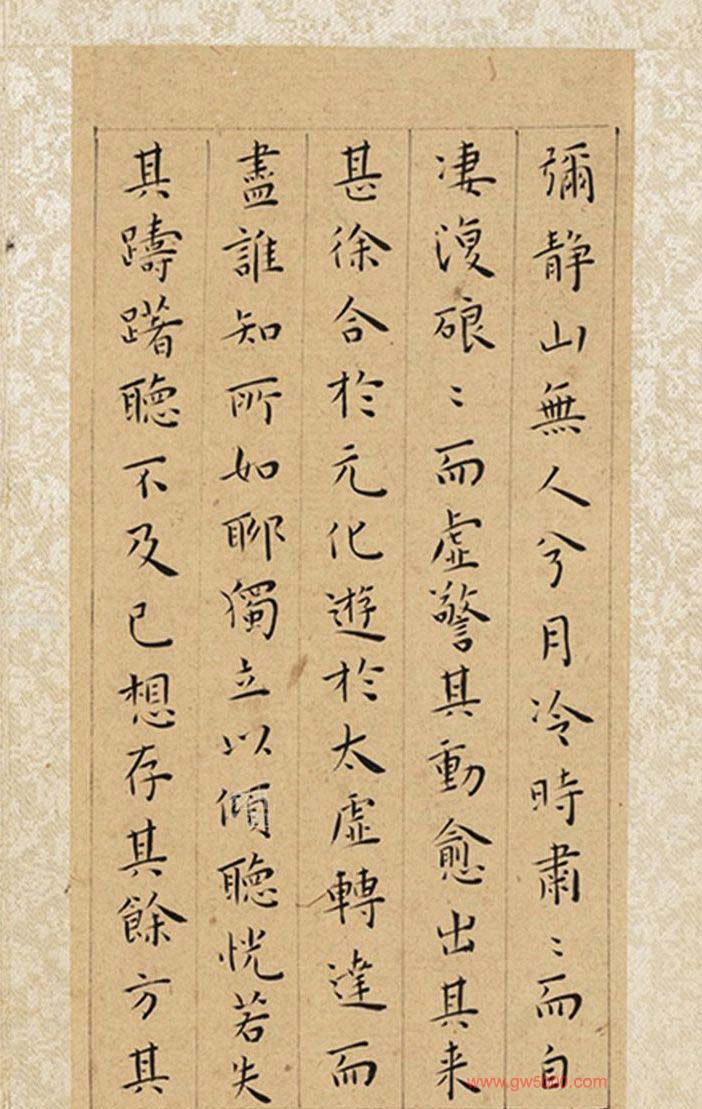 彌静山無人兮月冷時肅〻而自
凄復硠〻而虛警其動愈出其来
甚徐合於元化遊於太虛轉達而
盡誰知所如聊獨立以傾聽恍若失
其躊躇聽不及已想存其餘方其
www.gw5000.com